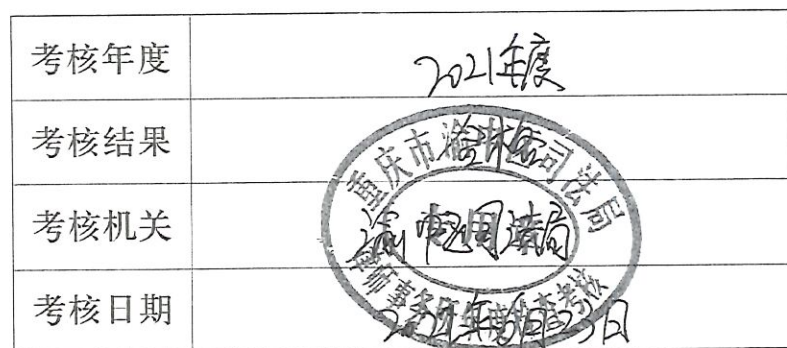 考核年度 2021年度
考核结果 合格
考核机关 渝中区司法局
考核日期
重庆市渝中区司法局
律师事务所年度检查考核